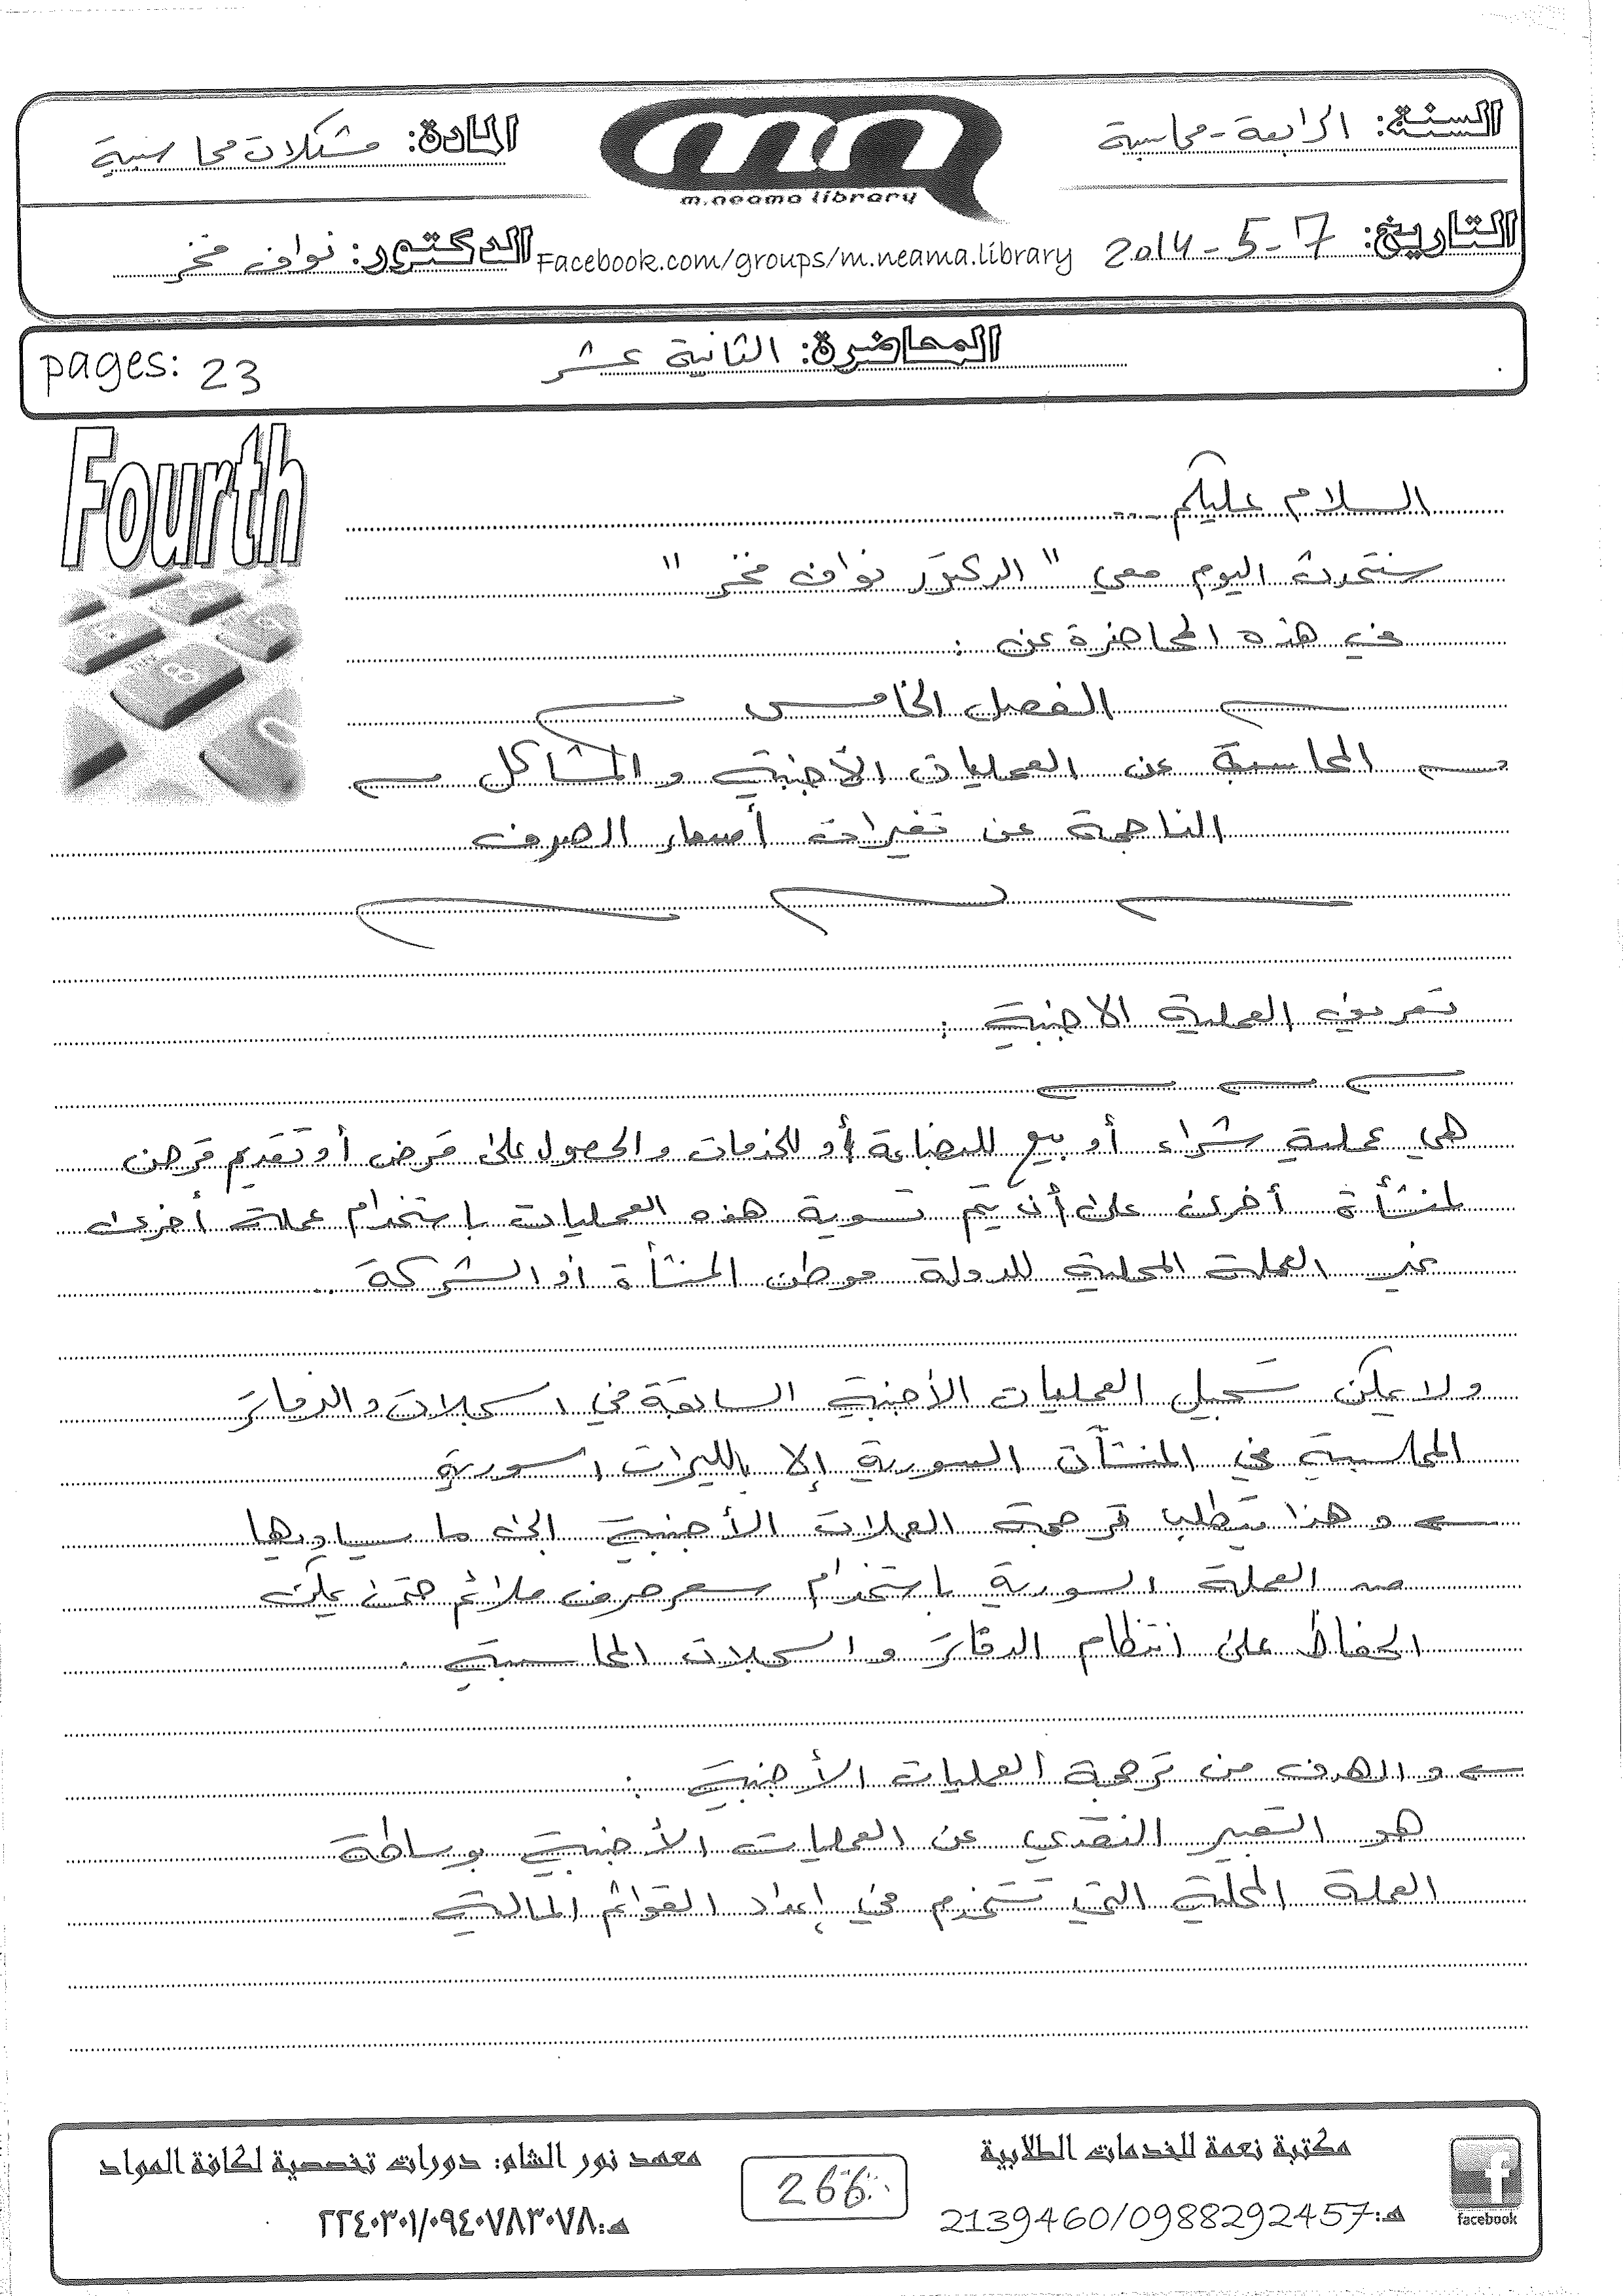 السنة: الرابعة - محاسبة
المادة: مشكلات محاسبية
m.neama library
التاريخ: 2014-5-17
Facebook.com/groups/m.neama.library
الدكتور: نواف فخر
المحاضرة: الثانية عشر
pages: 23
Fourth
السلام عليكم ...
سنتحدث اليوم معي " الدكتور نواف فخر "
في هذه المحاضرة عن :
الفصل الخامس
المحاسبة عن العمليات الأجنبية والمشاكل
الناجمة عن تغيرات أسعار الصرف
تعريف العملية الاجنبية :
هي عملية شراء أو بيع للبضاعة أو للخدمات والحصول على قرض أو تقديم قرض
لمنشأة أخرى على أن يتم تسوية هذه العمليات باستخدام عملة أخرى
غير العملة المحلية للدولة موطن المنشأة أو الشركة ..
ولا يمكن تسجيل العمليات الأجنبية السابقة في السجلات والدفاتر
المحاسبية في المنشآت السورية إلا بالليرات السورية
← وهذا يتطلب ترجمة العملات الأجنبية الى ما يساويها
من العملة السورية باستخدام سعر صرف ملائم حتى يمكن
الحفاظ على انتظام الدفاتر والسجلات المحاسبية .
← والهدف من ترجمة العمليات الأجنبية :
هو التعبير النقدي عن العمليات الأجنبية بوساطة
العملة المحلية التي تستخدم في إعداد القوائم المالية
مكتبة نعمة للخدمات الطلابية
هـ: 2139460/0988292457
266
معهد نور الشام: دورات تخصصية لكافة المواد
هـ: ٢٢٤٠٣٠١/٠٩٤٠٧٨٣٠٧٨
facebook